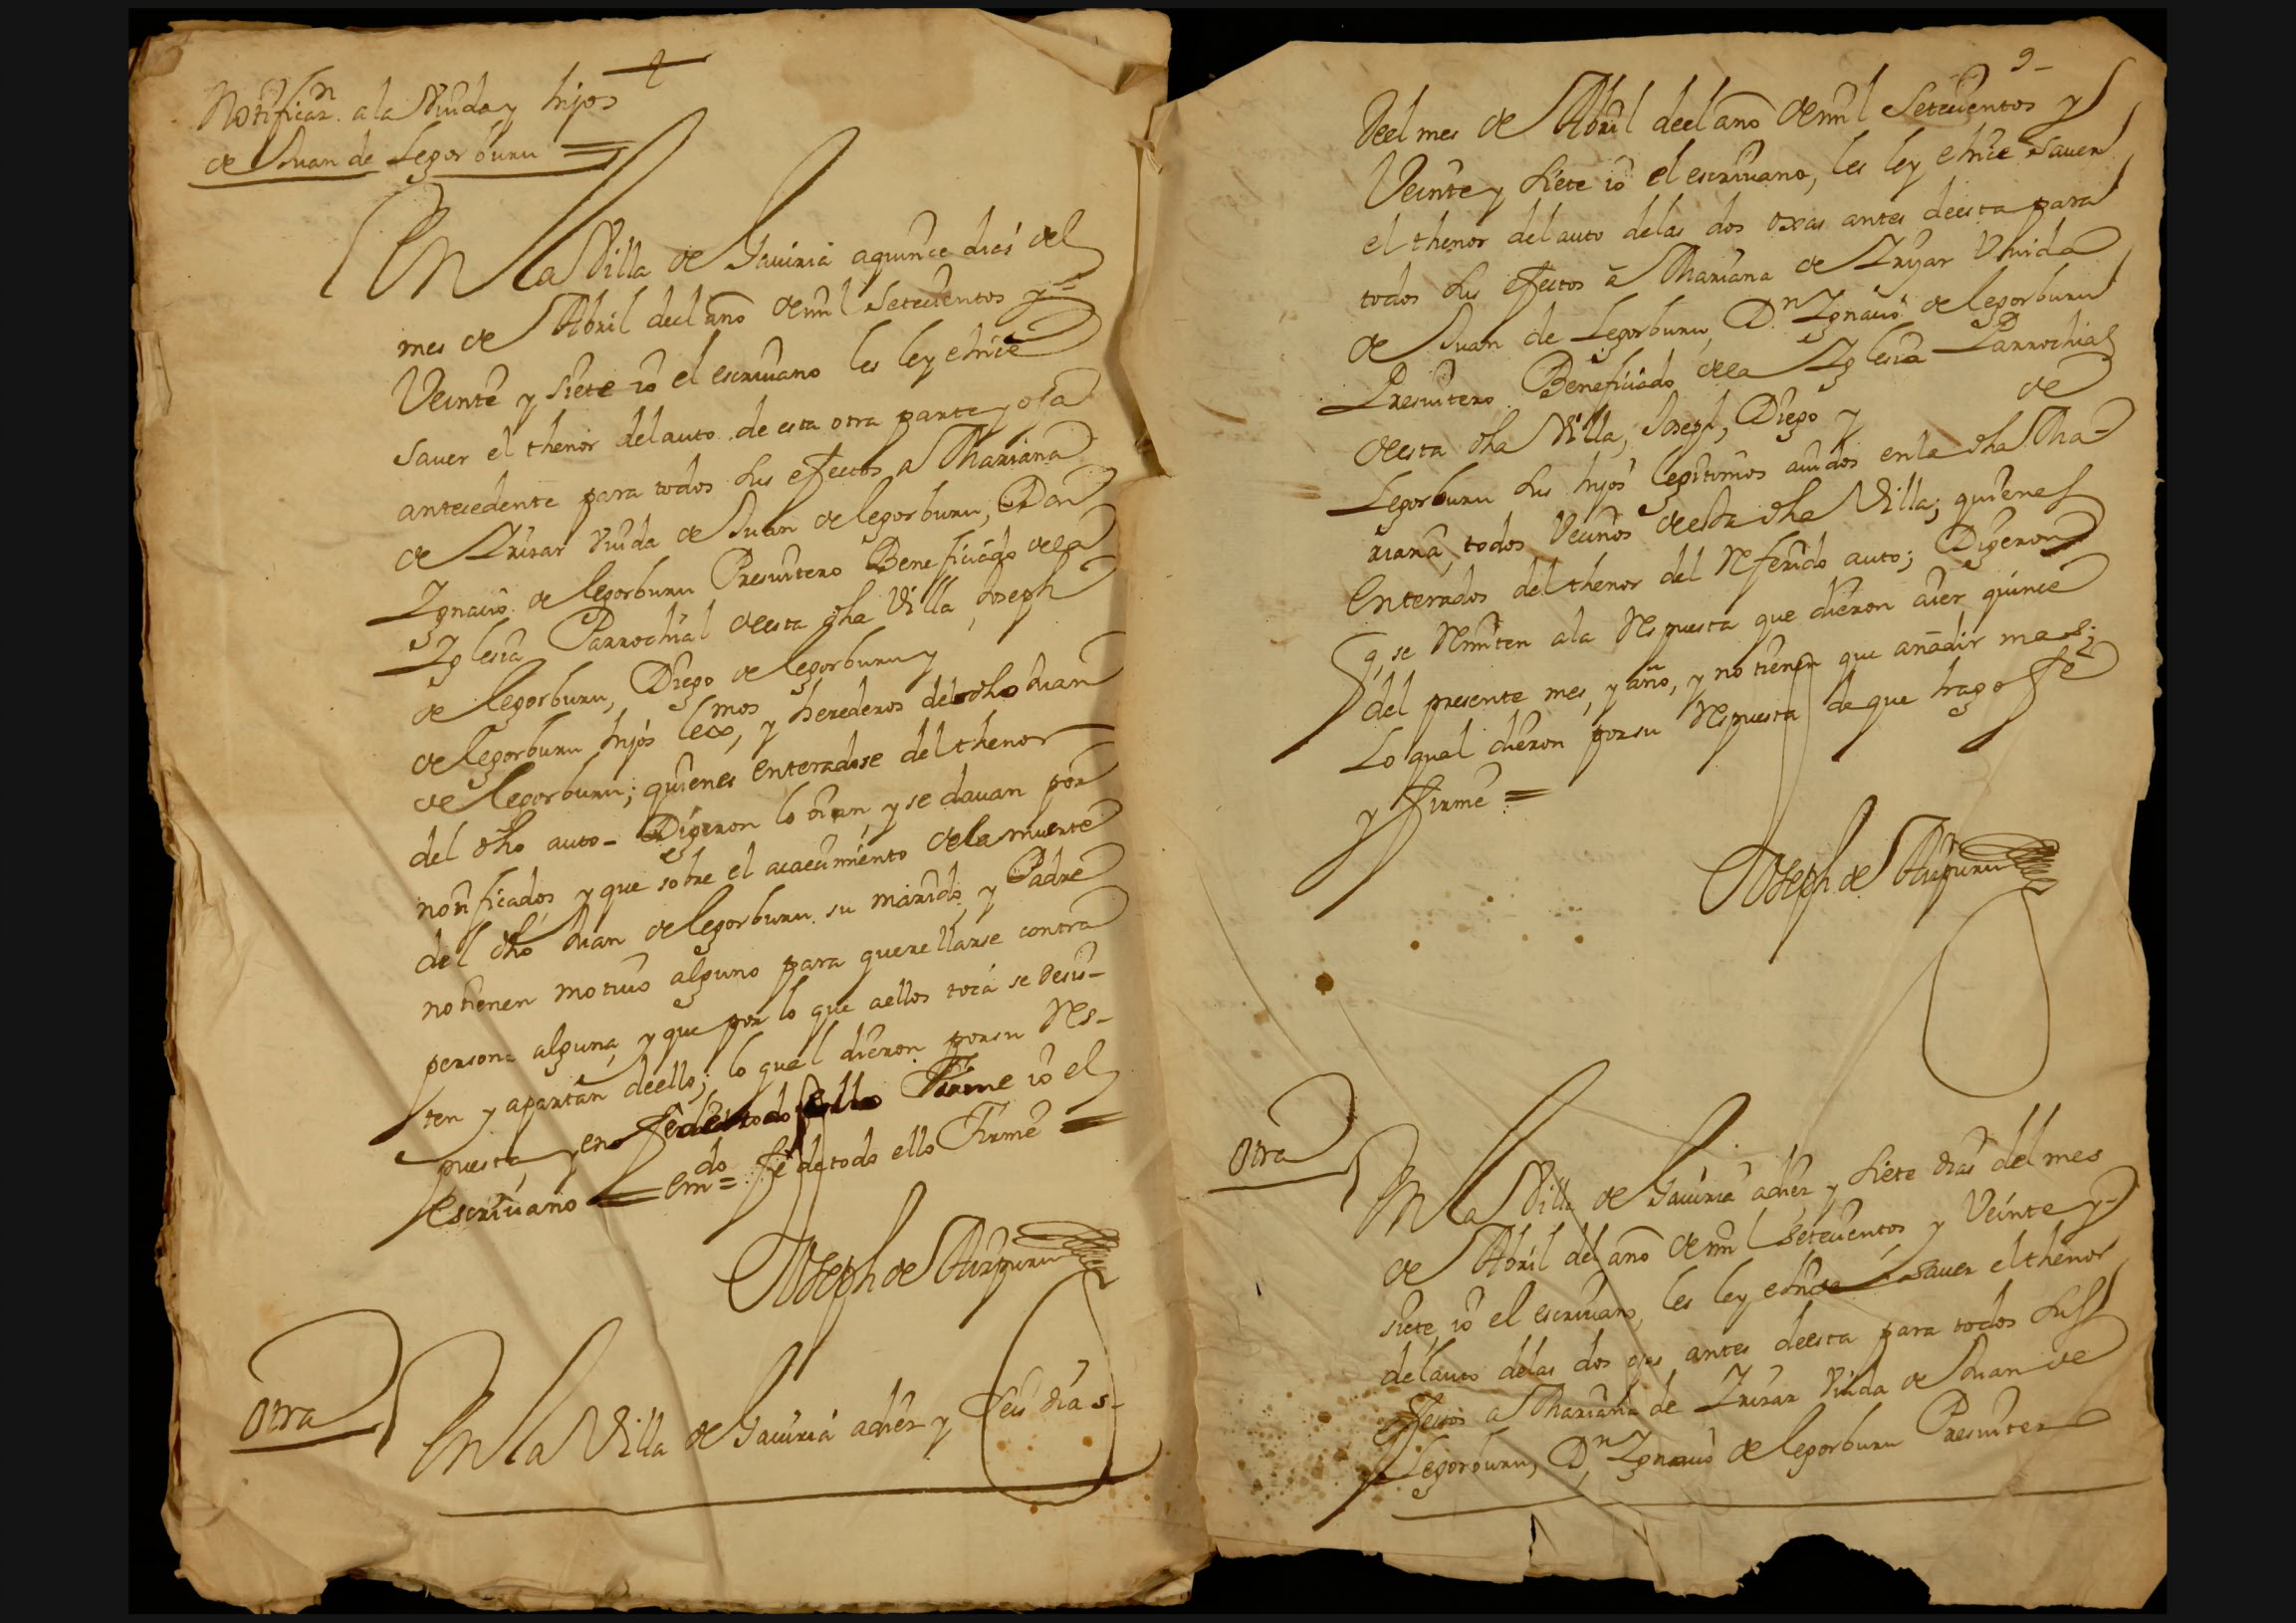 Notificaz.n ala Viuda y hijos
de Juan de Legorburu =
En la Villa de Gaviria a quince dias del
mes de Abril deel año de mil Setecientos y=
Veinte y Siete io el escrivano les ley e hice
saver el thenor del auto de esta otra parte y oja
antecedente para todos sus efectos a Mariana
de Irizar viuda de Juan de legorburu, Don
Ignacio de legorburu Presvitero Beneficiado de la
Iglesia Parrochial de esta dha Villa, Joseph
de legorburu, Diego de legorburu y
de legorburu hijos lexmos, y herederos del dho Juan
de legorburu; quienes enteradose del thenor
del dho auto - Digeron lo oian, y se davan por
notificados, y que sobre el acaecimiento de la muerte
del dho Juan de legorburu su marido, y Padre
no tienen motivo alguno para querellarse contra
persona alguna, y que por lo que a ellos toca se desis-
ten y apartan de ello; lo qual dieron por su Res-
puesta, y en fe de todo ello Firme io el
escrivano = Em.do = fe de todo ello Firme =
Joseph de Aizpuru
Otra
En la Villa de Gaviria a diez y Seis dias-
9-
Deel mes de Abril deel año de mil Setecientos y
Veinte y Siete io el escrivano, les ley e hice saver
el thenor del auto de las dos oxas antes de esta para
todos sus efectos a Mariana de Iryar Viuda
de Juan de Legorburu, D.n Ignacio de legorburu
Presvitero Beneficiado de la Iglesia Parrochial
de esta dha Villa, Joseph, Diego y de
Legorburu sus hijos legitimos avidos en la dha Ma-
riana, todos Vecinos de esta dha Villa; quienes
Enterados del thenor del Referido auto; Digeron
q, se Remiten a la Respuesta que dieron aier quince
del presente mes, y año, y no tienen que añadir mas;
Lo qual dieron por su Respuesta de que hago fe
y Firme =
Joseph de Aizpuru
Otra
En la Villa de Gaviria a diez y Siete dias del mes
de Abril del año de mil Setecientos y Veinte y-
siete, io el escrivano, les ley e hice saver el thenor
del auto de las dos ojas antes de esta para todos sus
efectos a Mariana de Irizar Viuda de Juan de
Legorburu, D.n Ignacio de legorburu Presvitero